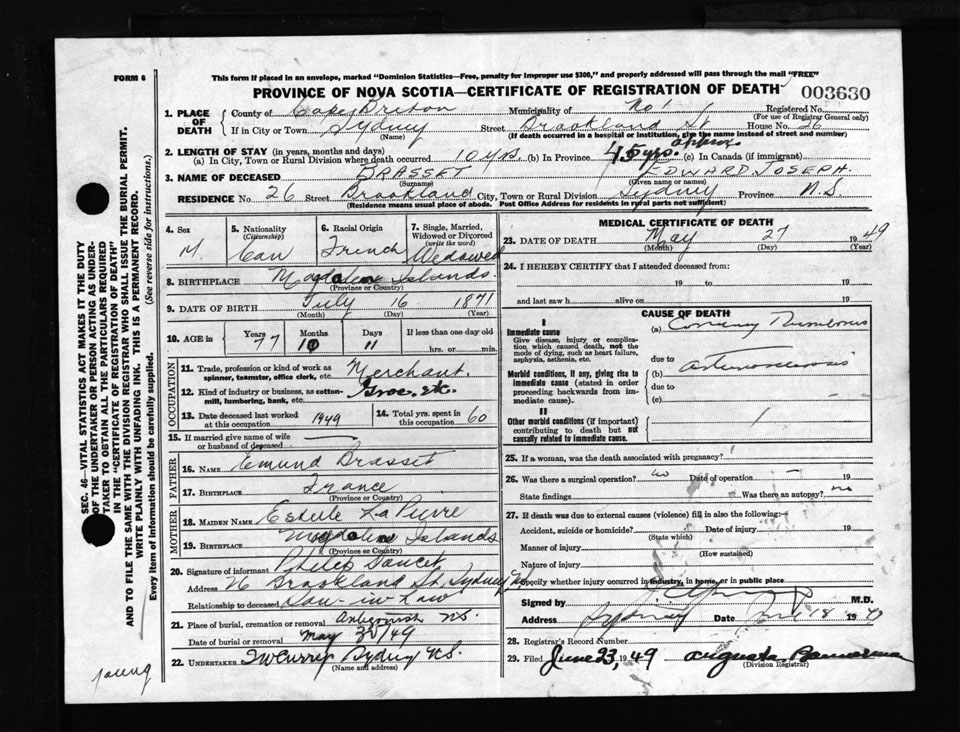 FORM 6
This form if placed in an envelope, marked "Dominion Statistics—Free, penalty for improper use $300," and properly addressed will pass through the mail "FREE"
PROVINCE OF NOVA SCOTIA—CERTIFICATE OF REGISTRATION OF DEATH
003630
1. PLACE OF DEATH County of Cape Breton Municipality of No 1 Registered No. (For use of Registrar General only)
If in City or Town Sydney (Name) Street Brookland St House No. 26
(If death occurred in a hospital or institution, give the name instead of street and number)
2. LENGTH OF STAY (in years, months and days)
(a) In City, Town or Rural Division where death occurred 10 yrs. (b) In Province 45 yrs. approx (c) In Canada (if immigrant)
3. NAME OF DECEASED BRASSET (Surname) EDWARD JOSEPH. (Given name or names)
RESIDENCE No 26 Street Brookland City, Town or Rural Division Sydney Province N.S
(Residence means usual place of abode. Post Office Address for residents in rural parts not sufficient)
4. Sex M.
5. Nationality (Citizenship) Can
6. Racial Origin French
7. Single, Married, Widowed or Divorced (write the word) Widowed
8. BIRTHPLACE Magdalene Islands. (Province or Country)
9. DATE OF BIRTH July 16 1871 (Month) (Day) (Year)
10. AGE in Years 77 Months 10 Days 11 If less than one day old hrs. or min.
OCCUPATION
11. Trade, profession or kind of work as spinner, teamster, office clerk, etc. Merchant.
12. Kind of industry or business, as cotton-mill, lumbering, bank, etc. Groc. etc.
13. Date deceased last worked at this occupation 1949
14. Total yrs. spent in this occupation 60
15. If married give name of wife or husband of deceased
FATHER
16. NAME Emund Brasset
17. BIRTHPLACE France (Province or Country)
MOTHER
18. MAIDEN NAME LaPierre
19. BIRTHPLACE Magdalene Islands (Province or Country)
20. Signature of informant Philip
Address 26 Brookland St. Sydney N.S.
Relationship to deceased Son-in-Law
21. Place of burial, cremation or removal Antigonish N.S.
Date of burial or removal May 30/49
22. UNDERTAKER Curry Sydney N.S. (Name and address)
MEDICAL CERTIFICATE OF DEATH
23. DATE OF DEATH May 27 1949 (Month) (Day) (Year)
24. I HEREBY CERTIFY that I attended deceased from:
19 to 19
and last saw h alive on 19
CAUSE OF DEATH
I
Immediate cause (a) Coronary Thrombosis
Give disease, injury or complication which caused death, not the mode of dying, such as heart failure, asphyxia, asthenia, etc.
due to
Morbid conditions, if any, giving rise to immediate cause (stated in order proceeding backwards from immediate cause). (b) arteriosclerosis
due to
(c)
II
Other morbid conditions (if important) contributing to death but not causally related to immediate cause.
25. If a woman, was the death associated with pregnancy?
26. Was there a surgical operation? no Date of operation – 19
State findings Was there an autopsy? no
27. If death was due to external causes (violence) fill in also the following:—
Accident, suicide or homicide? (State which) Date of injury 19
Manner of injury (How sustained)
Nature of injury
Specify whether injury occurred in industry, in home, or in public place
Signed by M.D.
Address Sydney Date 18 19
28. Registrar's Record Number
29. Filed June 23 1949 Augusta (Division Registrar)
SEC. 46—VITAL STATISTICS ACT MAKES IT THE DUTY
OF THE UNDERTAKER OR PERSON ACTING AS UNDER-
TAKER TO OBTAIN ALL THE PARTICULARS REQUIRED
IN THE "CERTIFICATE OF REGISTRATION OF DEATH"
AND TO FILE THE SAME WITH THE DIVISION REGISTRAR WHO SHALL ISSUE THE BURIAL PERMIT.
WRITE PLAINLY WITH UNFADING INK. THIS IS A PERMANENT RECORD.
Every item of information should be carefully supplied. (See reverse side for instructions.)
young